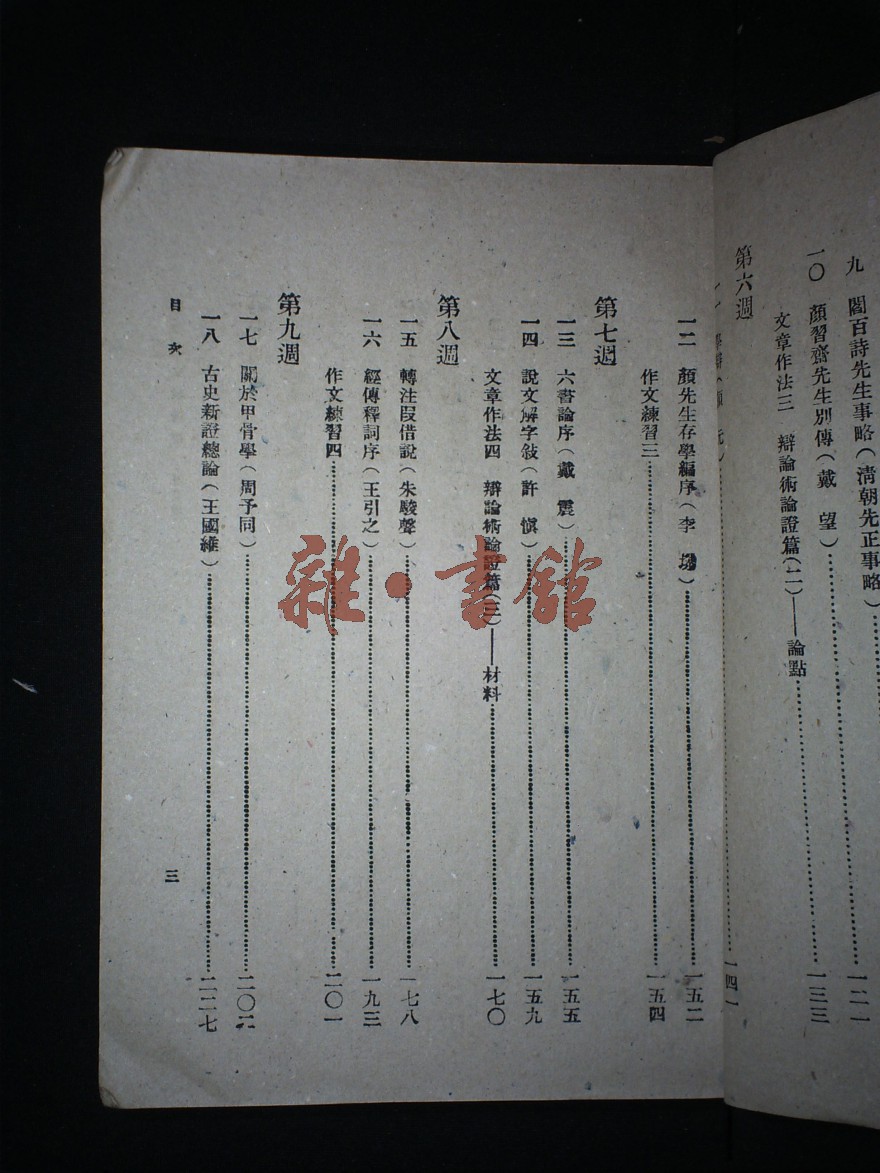 九 閻百詩先生事略(清朝先正事略)……一二一
一〇 顏習齋先生別傳(戴 望)……一三三
文章作法三 辯論術論證篇(二)——論點……
第六週
……一四一
一二 顏先生存學編序(李 塨)……一五二
作文練習三……一五四
第七週
一三 六書論序(戴 震)……一五五
一四 說文解字敍(許 愼)……一五九
文章作法四 辯論術論證篇(三)——材料……一七〇
第八週
一五 轉注叚借說(朱駿聲)……一七八
一六 經傳釋詞序(王引之)……一九三
作文練習四……二〇一
第九週
一七 關於甲骨學(周予同)……二〇二
一八 古史新證總論(王國維)……二二七
目 次
三
雜·書館